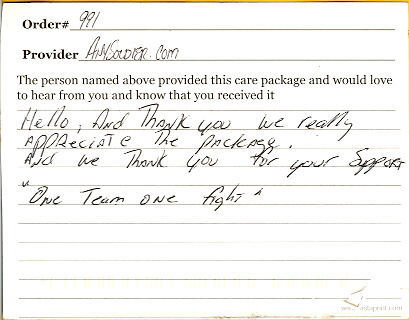 Order# 991
Provider AnySoldier.com
The person named above provided this care package and would love
to hear from you and know that you received it
Hello, And Thank you we really
appreciate the package.
And we Thank you for your Support
"One Team one fight"